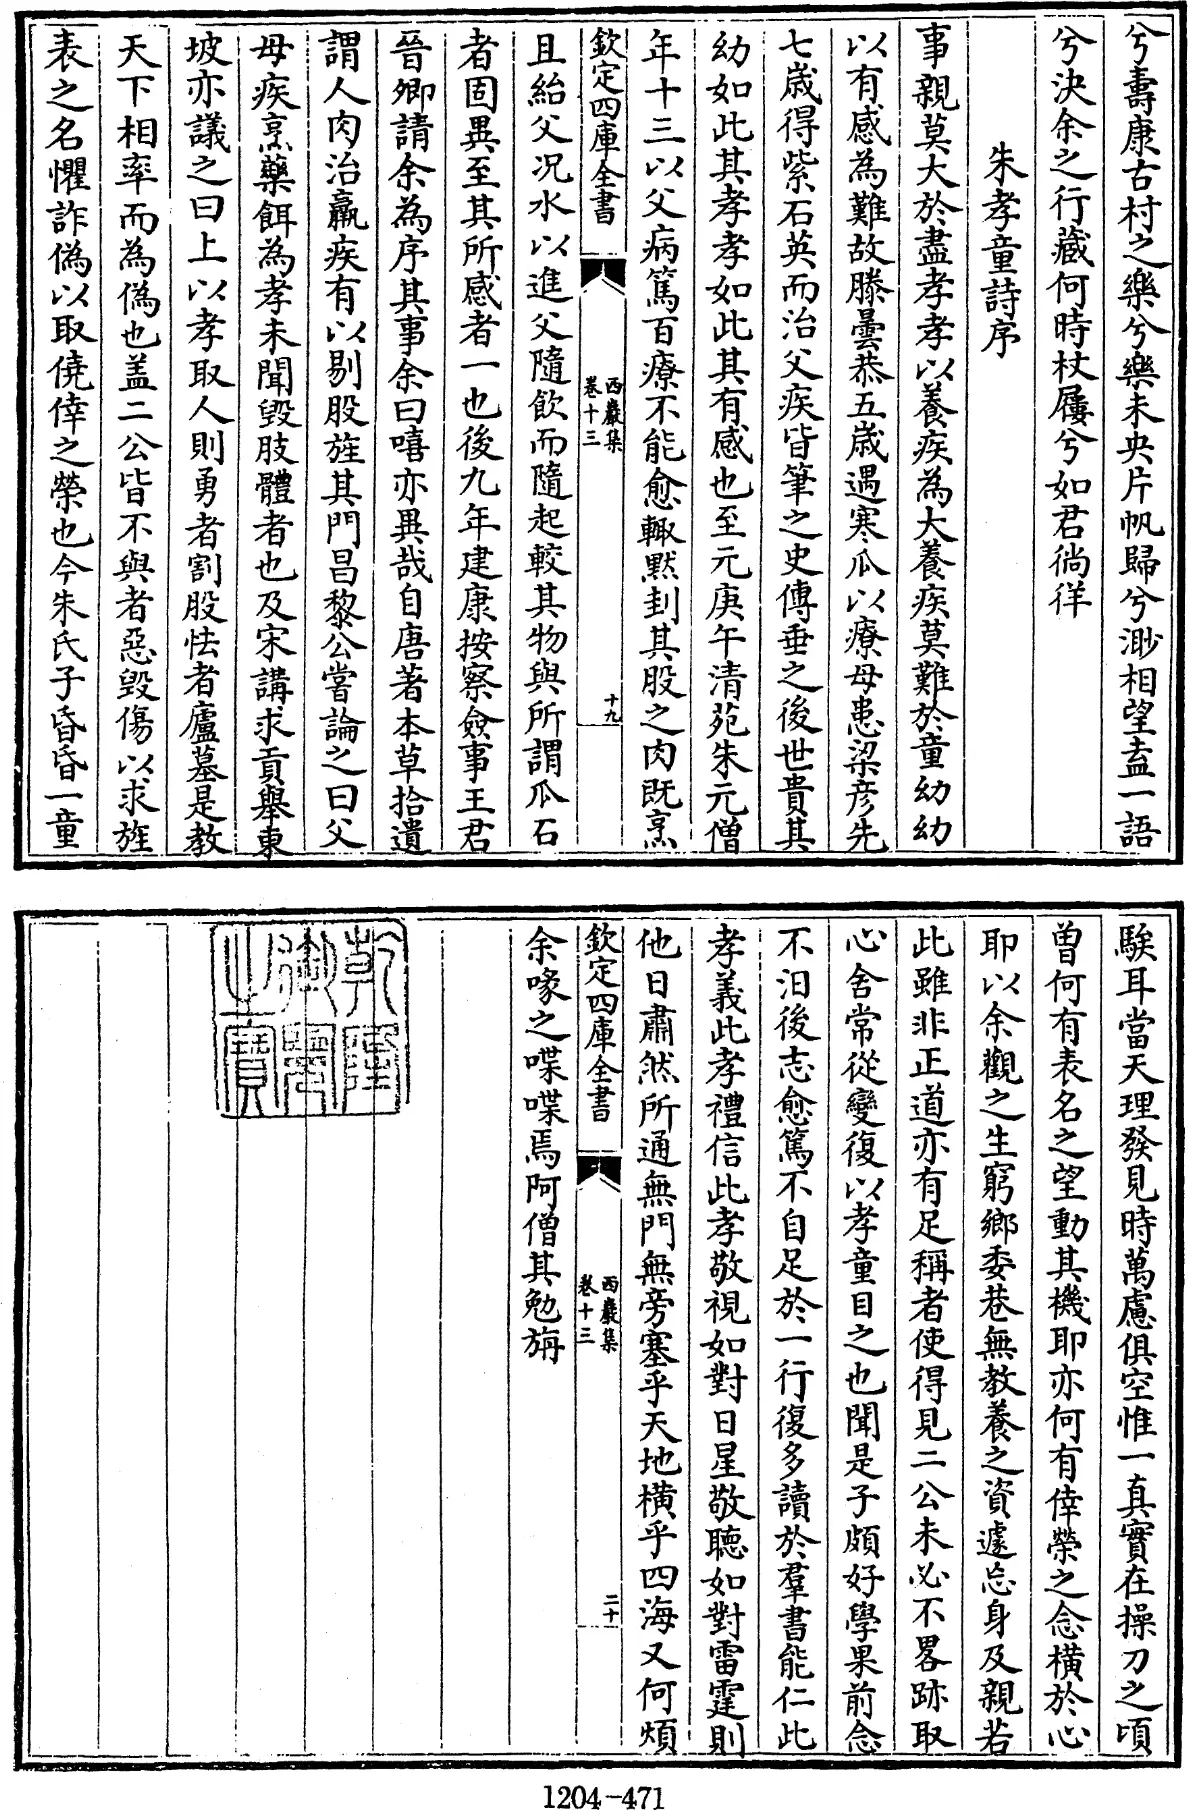 兮壽康古村之樂兮樂未央片帆歸兮渺相望盍一語
兮決余之行藏何時杖屨兮如君徜徉
朱孝童詩序
事親莫大於盡孝孝以養疾為大養疾莫難於童幼幼
以有感為難故滕曇恭五歲遇寒瓜以療母患梁彥先
七歲得紫石英而治父疾皆筆之史傳垂之後世貴其
幼如此其孝孝如此其有感也至元庚午清苑朱元僧
年十三以父病篤百療不能愈輙黙刲其股之肉既烹
欽定四庫全書
西巖集
卷十三
十九
且紿父况水以進父隨飲而隨起較其物與所謂瓜石
者固異至其所感者一也後九年建康按察僉事王君
晉卿請余為序其事余曰嘻亦異哉自唐著本草拾遺
謂人肉治羸疾有以剔股旌其門昌黎公嘗論之曰父
母疾烹藥餌為孝未聞毀肢體者也及宋講求貢舉東
坡亦議之曰上以孝取人則勇者割股怯者廬墓是教
天下相率而為偽也盖二公皆不與者惡毀傷以求旌
表之名懼詐偽以取僥倖之榮也今朱氏子昏昏一童
騃耳當天理發見時萬慮俱空惟一真實在操刀之頃
曾何有表名之望動其機耶亦何有倖榮之念橫於心
耶以余觀之生窮鄉委巷無教養之資遽忘身及親若
此雖非正道亦有足稱者使得見二公未必不畧跡取
心舍常從變復以孝童目之也聞是子頗好學果前念
不汨後志愈篤不自足於一行復多讀於羣書能仁此
孝義此孝禮信此孝敬視如對日星敬聽如對雷霆則
他日肅然所通無門無旁塞乎天地橫乎四海又何煩
欽定四庫全書
西巖集
卷十三
二十
余喙之喋喋焉阿僧其勉旃
乾隆御覽之寶
1204-471